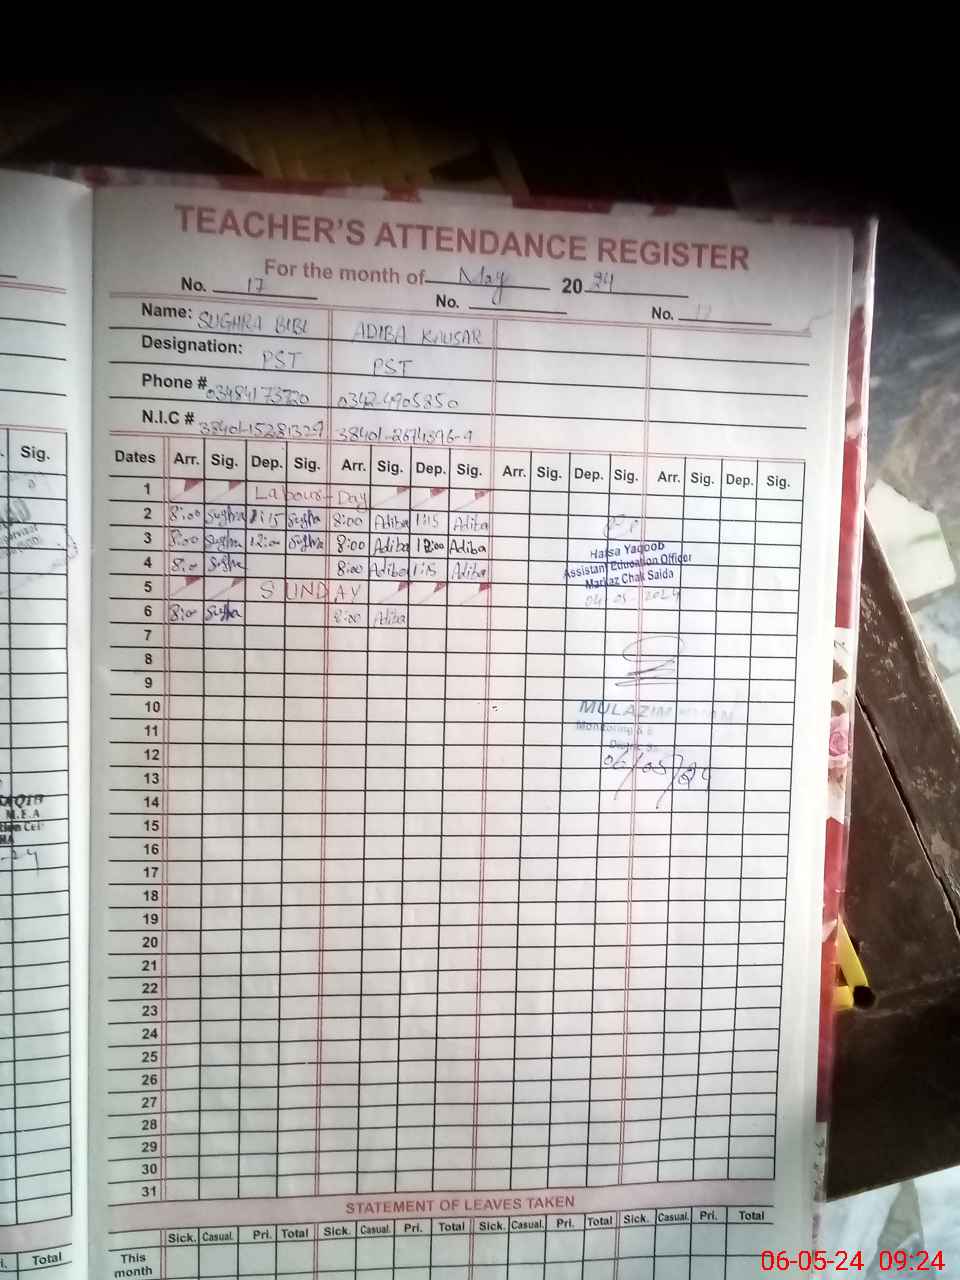 TEACHER'S ATTENDANCE REGISTER
For the month of May 20 24
No. 17 No. No.
Name: SUGHRA BIBI ADIBA KAUSAR
Designation: PST PST
Phone # 03484173720 0342-4905850
N.I.C # 38401-15281329 38401-2674396-9
Sig.
Dates Arr. Sig. Dep. Sig. Arr. Sig. Dep. Sig. Arr. Sig. Dep. Sig. Arr. Sig. Dep. Sig.
1 Labour Day
2 8:00 Sughra 1:15 Sughra 8:00 Adiba 1:15 Adiba
3 8:00 Sughra 12:00 Sughra 8:00 Adiba 12:00 Adiba
4 8:00 Sughra 8:00 Adiba 1:15 Adiba
Hafsa Yaqoob
Assistant Education Officer
Markaz Chak Saida
04-05-2024
5 SUNDAY
6 8:00 Sughra 8:00 Adiba
7
8
9
10
MULAZIM
11
Monitoring &
12
06/05/24
13
14
15
16
17
18
19
20
21
22
23
24
25
26
27
28
29
30
31
M.E.A
STATEMENT OF LEAVES TAKEN
Sick. Casual. Pri. Total Sick. Casual. Pri. Total Sick. Casual. Pri. Total Sick. Casual. Pri. Total
This month
Total
06-05-24 09:24